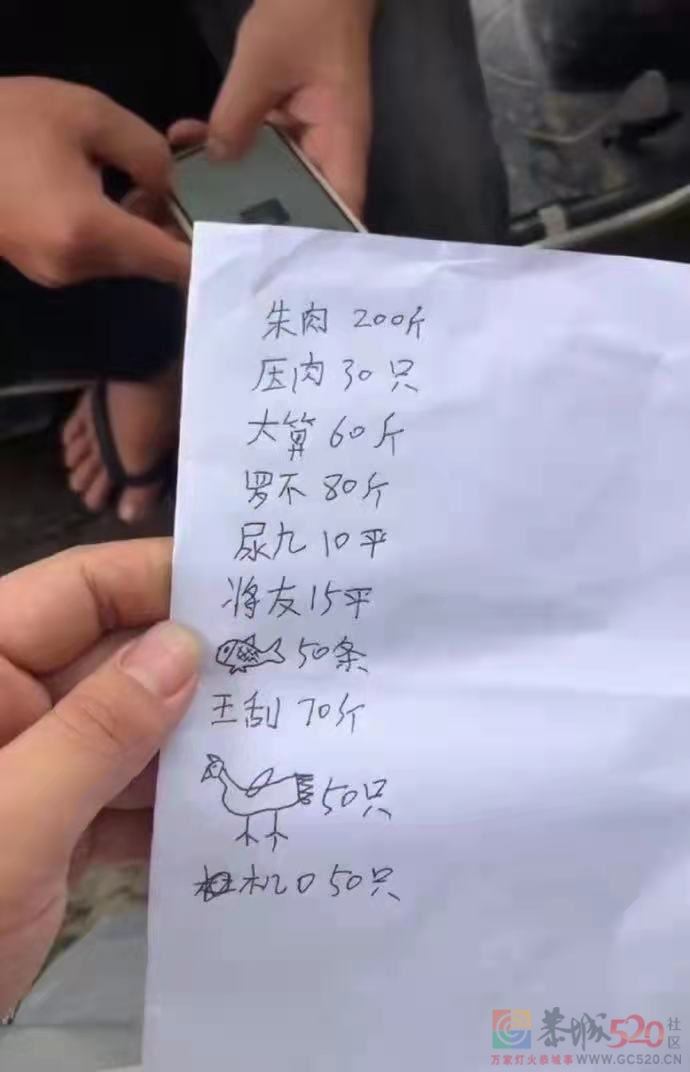 朱肉 200斤
压肉 30只
大算 60斤
罗不 80斤
尿九 10平
将友 15平
50条
王刮 70斤
50只
机 50只
恭城520社区
万家灯火恭城事 WWW.GC520.CN